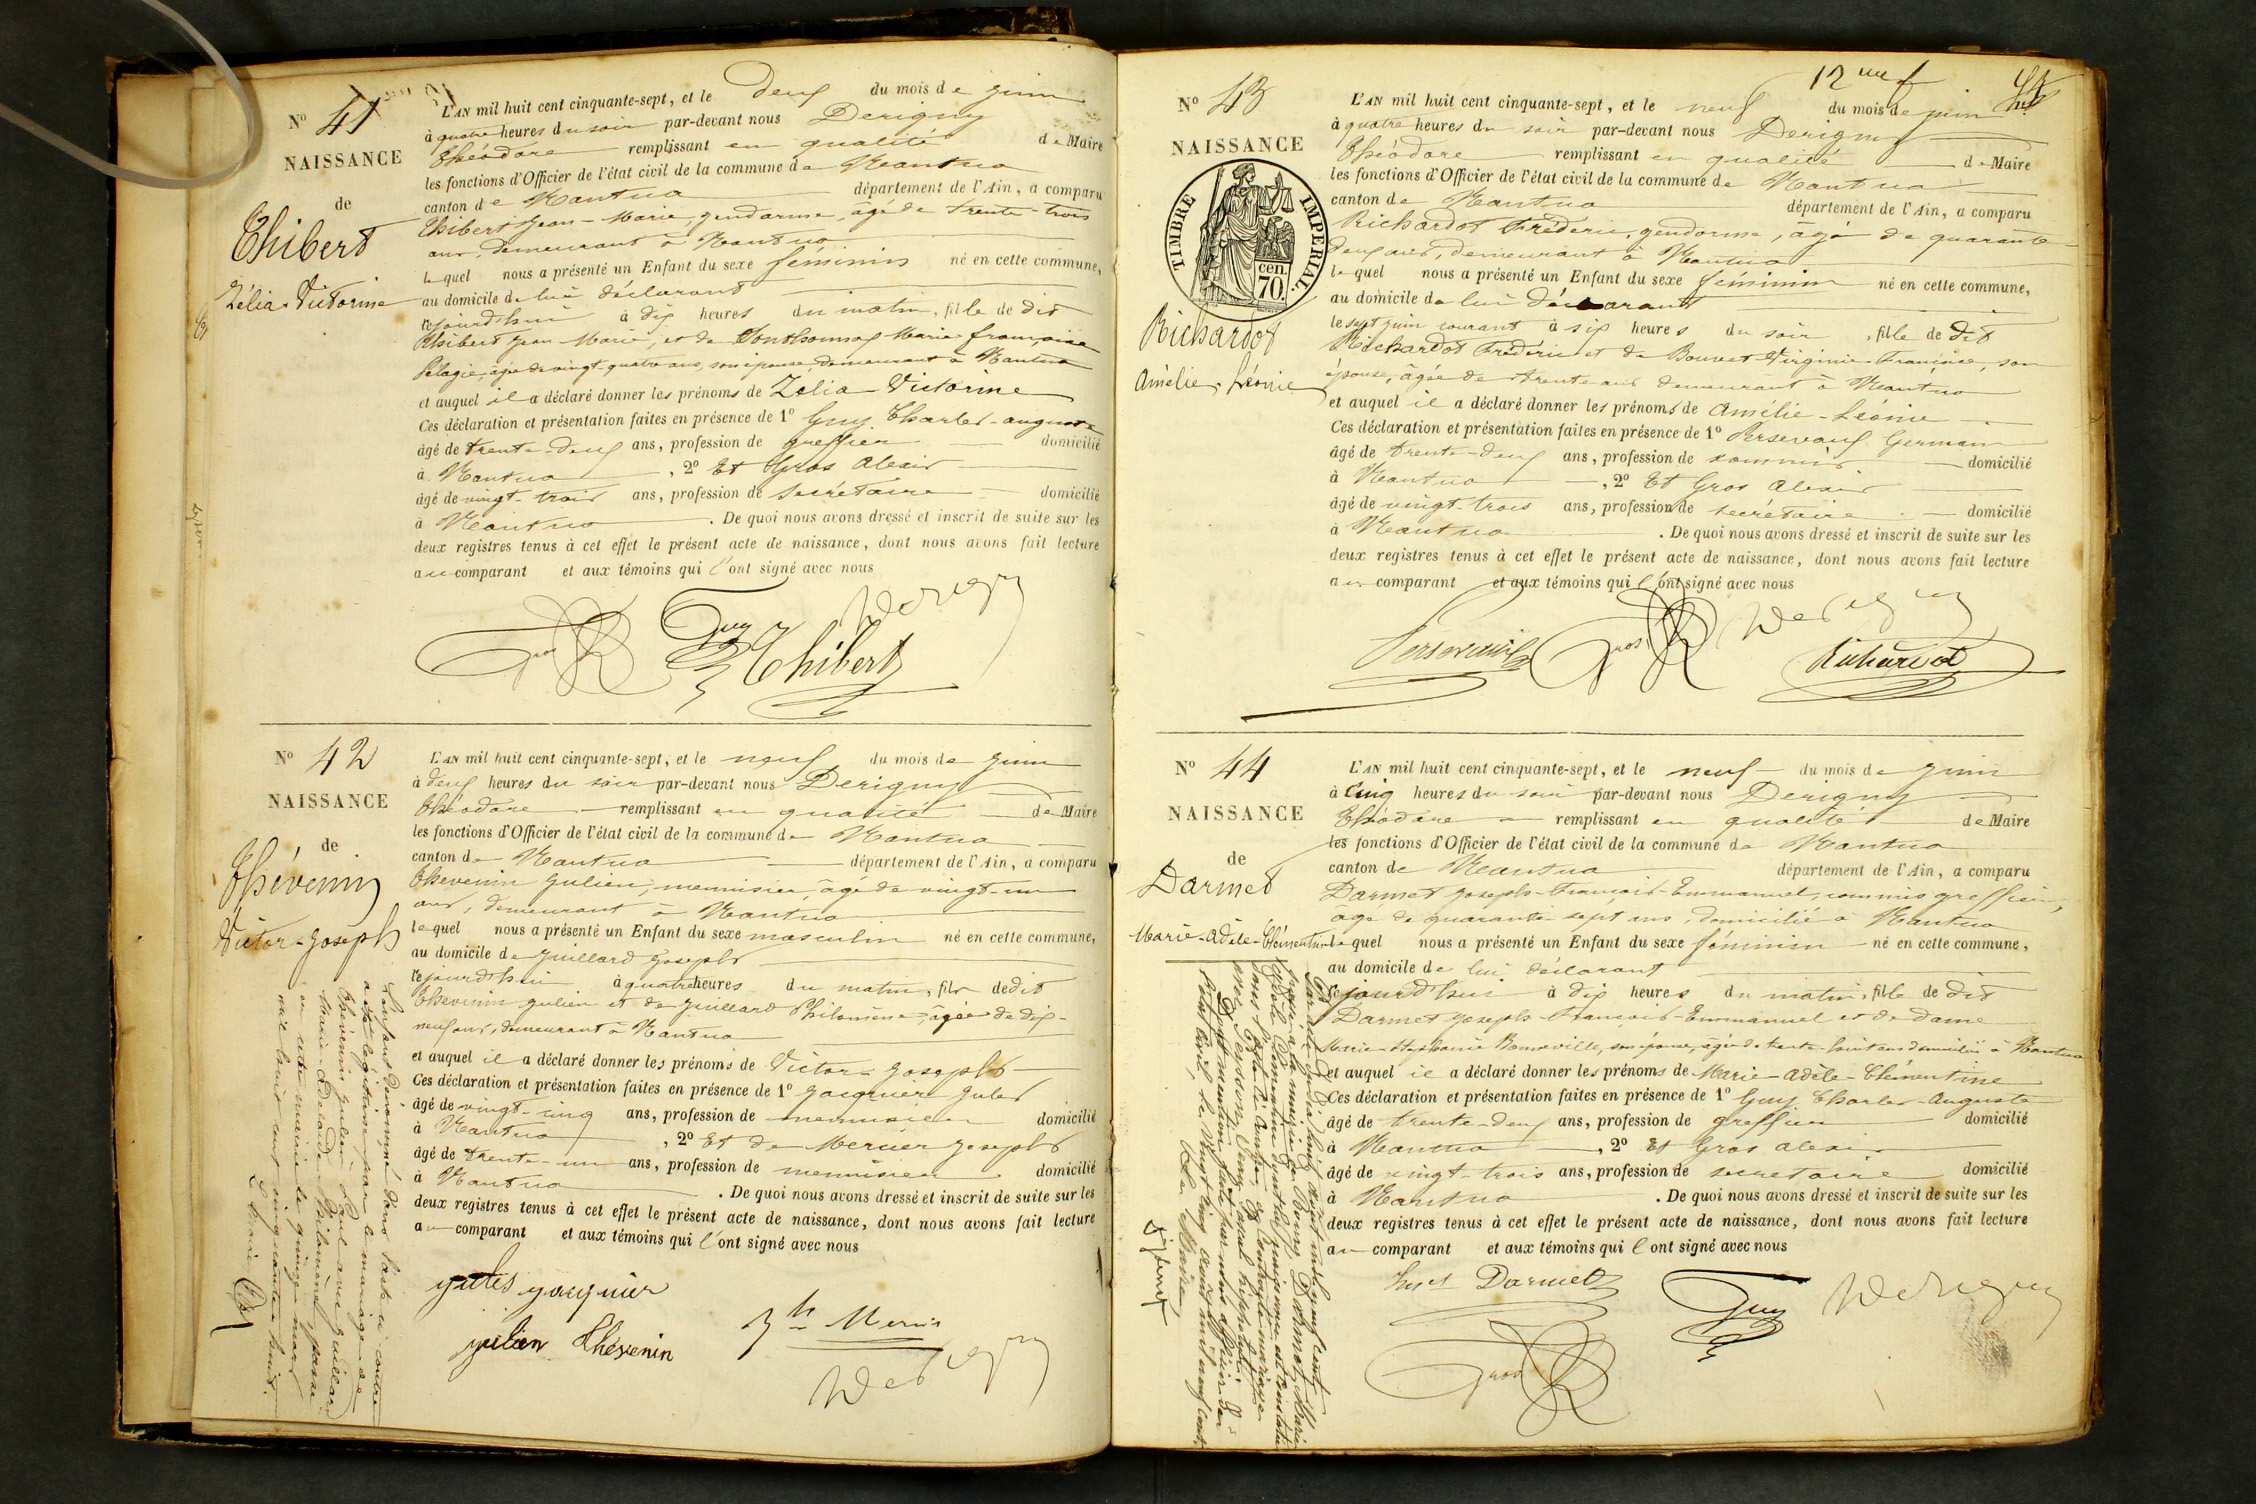 N° 41
NAISSANCE
de
Thibert
Zélia-Victorine
L'AN mil huit cent cinquante-sept, et le deux du mois de juin
à quatre heures du soir par-devant nous Derigny
Théodore remplissant en qualité de Maire
les fonctions d'Officier de l'état civil de la commune de Nantua
canton de Nantua département de l'Ain, a comparu
Thibert Jean-Marie, gendarme, âgé de trente-trois
ans, demeurant à Nantua
lequel nous a présenté un Enfant du sexe féminin né en cette commune,
au domicile de lui déclarant
cejourd'hui à dix heures du matin, fille de dit
Thibert Jean Marie, et de Marie françoise
Pélagie, âgée de vingt-quatre ans, son épouse, demeurant à Nantua
et auquel il a déclaré donner les prénoms de Zélia-Victorine
Ces déclaration et présentation faites en présence de 1° Guy Charles-auguste
âgé de trente-deux ans, profession de greffier domicilié
à Nantua, 2° Et Gros Alexis
âgé de vingt-trois ans, profession de secrétaire domicilié
à Nantua. De quoi nous avons dressé et inscrit de suite sur les
deux registres tenus à cet effet le présent acte de naissance, dont nous avons fait lecture
au comparant et aux témoins qui l'ont signé avec nous
Gros Guy Derigny
Thibert
N° 42
NAISSANCE
de
Thévenin
Victor-Joseph
L'AN mil huit cent cinquante-sept, et le neuf du mois de juin
à deux heures du soir par-devant nous Derigny
Théodore remplissant en qualité de Maire
les fonctions d'Officier de l'état civil de la commune de Nantua
canton de Nantua département de l'Ain, a comparu
Thevenin Julien, menuisier, âgé de vingt-un
ans, demeurant à Nantua
lequel nous a présenté un Enfant du sexe masculin né en cette commune,
au domicile de Juillard Joseph
cejourd'hui à quatre heures du matin, fils de dit
Thevenin Julien et de Juillard Philomène, âgée de dix-
neuf ans, demeurant à Nantua
et auquel il a déclaré donner les prénoms de Victor-Joseph
Ces déclaration et présentation faites en présence de 1° Jacquier Jules
âgé de vingt-cinq ans, profession de menuisier domicilié
à Nantua, 2° Et de Mercier Joseph
âgé de trente-un ans, profession de menuisier domicilié
à Nantua. De quoi nous avons dressé et inscrit de suite sur les
deux registres tenus à cet effet le présent acte de naissance, dont nous avons fait lecture
au comparant et aux témoins qui l'ont signé avec nous
Jules Jacquier
julien thévenin
Derigny
L'enfant dénommé dans l'acte ci contre
a été légitimé par le mariage de
Thévenin Julien Paul avec Juillard
Marie-Adelaide Philomène, passé
en cette mairie le quinze mars
mil huit cent cinquante huit.
N° 43
NAISSANCE
TIMBRE IMPERIAL.
70 cen.
Richardot
Amélie-Léonie
12me f
L'AN mil huit cent cinquante-sept, et le neuf du mois de juin
à quatre heures du soir par-devant nous Derigny
Théodore remplissant en qualité de Maire
les fonctions d'Officier de l'état civil de la commune de Nantua
canton de Nantua département de l'Ain, a comparu
Richardot Frédéric, gendarme, âgé de quarante-
deux ans, demeurant à Nantua
lequel nous a présenté un Enfant du sexe féminin né en cette commune,
au domicile de lui déclarant
le sept juin courant à six heures du soir, fille de dit
Richardot Frédéric et de Bouvet Virginie-Françoise, son
épouse, âgée de trente ans demeurant à Nantua
et auquel il a déclaré donner les prénoms de Amélie-Léonie
Ces déclaration et présentation faites en présence de 1° Germain
âgé de trente-deux ans, profession de commis domicilié
à Nantua, 2° Et Gros Alexis
âgé de vingt-trois ans, profession de secrétaire domicilié
à Nantua. De quoi nous avons dressé et inscrit de suite sur les
deux registres tenus à cet effet le présent acte de naissance, dont nous avons fait lecture
au comparant et aux témoins qui l'ont signé avec nous
Gros Derigny
Richardot
N° 44
NAISSANCE
de
Darmet
Marie-Adèle-Clémentine
L'AN mil huit cent cinquante-sept, et le neuf du mois de juin
à cinq heures du soir par-devant nous Derigny
Théodore remplissant en qualité de Maire
les fonctions d'Officier de l'état civil de la commune de Nantua
canton de Nantua département de l'Ain, a comparu
Darmet Joseph-François-Emmanuel, commis greffier,
âgé de quarante-sept ans, domicilié à Nantua
lequel nous a présenté un Enfant du sexe féminin né en cette commune,
au domicile de lui déclarant
cejourd'hui à dix heures du matin, fille de dit
Darmet Joseph-François-Emmanuel et de Dame
Marie-Stéphanie Bonneville, son épouse, âgée de trente-huit ans domiciliée à Nantua
et auquel il a déclaré donner les prénoms de Marie-Adèle-Clémentine
Ces déclaration et présentation faites en présence de 1° Guy Charles-Auguste
âgé de trente-deux ans, profession de greffier domicilié
à Nantua, 2° Et Gros Alexis
âgé de vingt-trois ans, profession de secrétaire domicilié
à Nantua. De quoi nous avons dressé et inscrit de suite sur les
deux registres tenus à cet effet le présent acte de naissance, dont nous avons fait lecture
au comparant et aux témoins qui l'ont signé avec nous
Darmet Guy Derigny
Gros